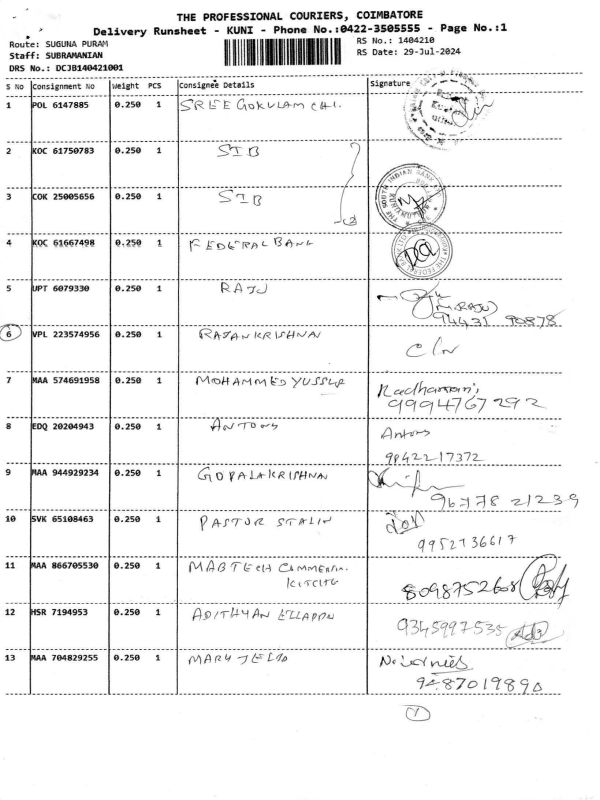 THE PROFESSIONAL COURIERS, COIMBATORE
Delivery Runsheet - KUNI - Phone No.:0422-3505555 - Page No.:1
Route: SUGUNA PURAM
RS No.: 1404210
Staff: SUBRAMANIAN
RS Date: 29-Jul-2024
DRS No.: DCJB140421001
S No Consignment No Weight PCS Consignee Details Signature
1 POL 6147885 0.250 1 SREE GOKULAM CHI.
2 KOC 61750783 0.250 1 SIB
3 COK 25005656 0.250 1 SIB
THE SOUTH INDIAN BANK
4 KOC 61667498 0.250 1 FEDERAL BANK
THE FEDERAL BANK LTD
5 UPT 6079330 0.250 1 RAJU
(RAJU)
94431 90878
6 VPL 223574956 0.250 1 RAJAN KRISHNAN C/N
7 MAA 574691958 0.250 1 MOHAMMED YUSSUF Radhamani
9994767292
8 EDQ 20204943 0.250 1 ANTONY Antony
9842217372
9 MAA 944929234 0.250 1 GOPALAKRISHNAN
96778 21239
10 SVK 65108463 0.250 1 PASTOR STALIN
9952736617
11 MAA 866705530 0.250 1 MABTECH COMMERCIAL
KITCHE
8098752608
12 HSR 7194953 0.250 1 ADITHYAN ELLAPPN 9345997535
13 MAA 704829255 0.250 1 MARY
9487019890
1